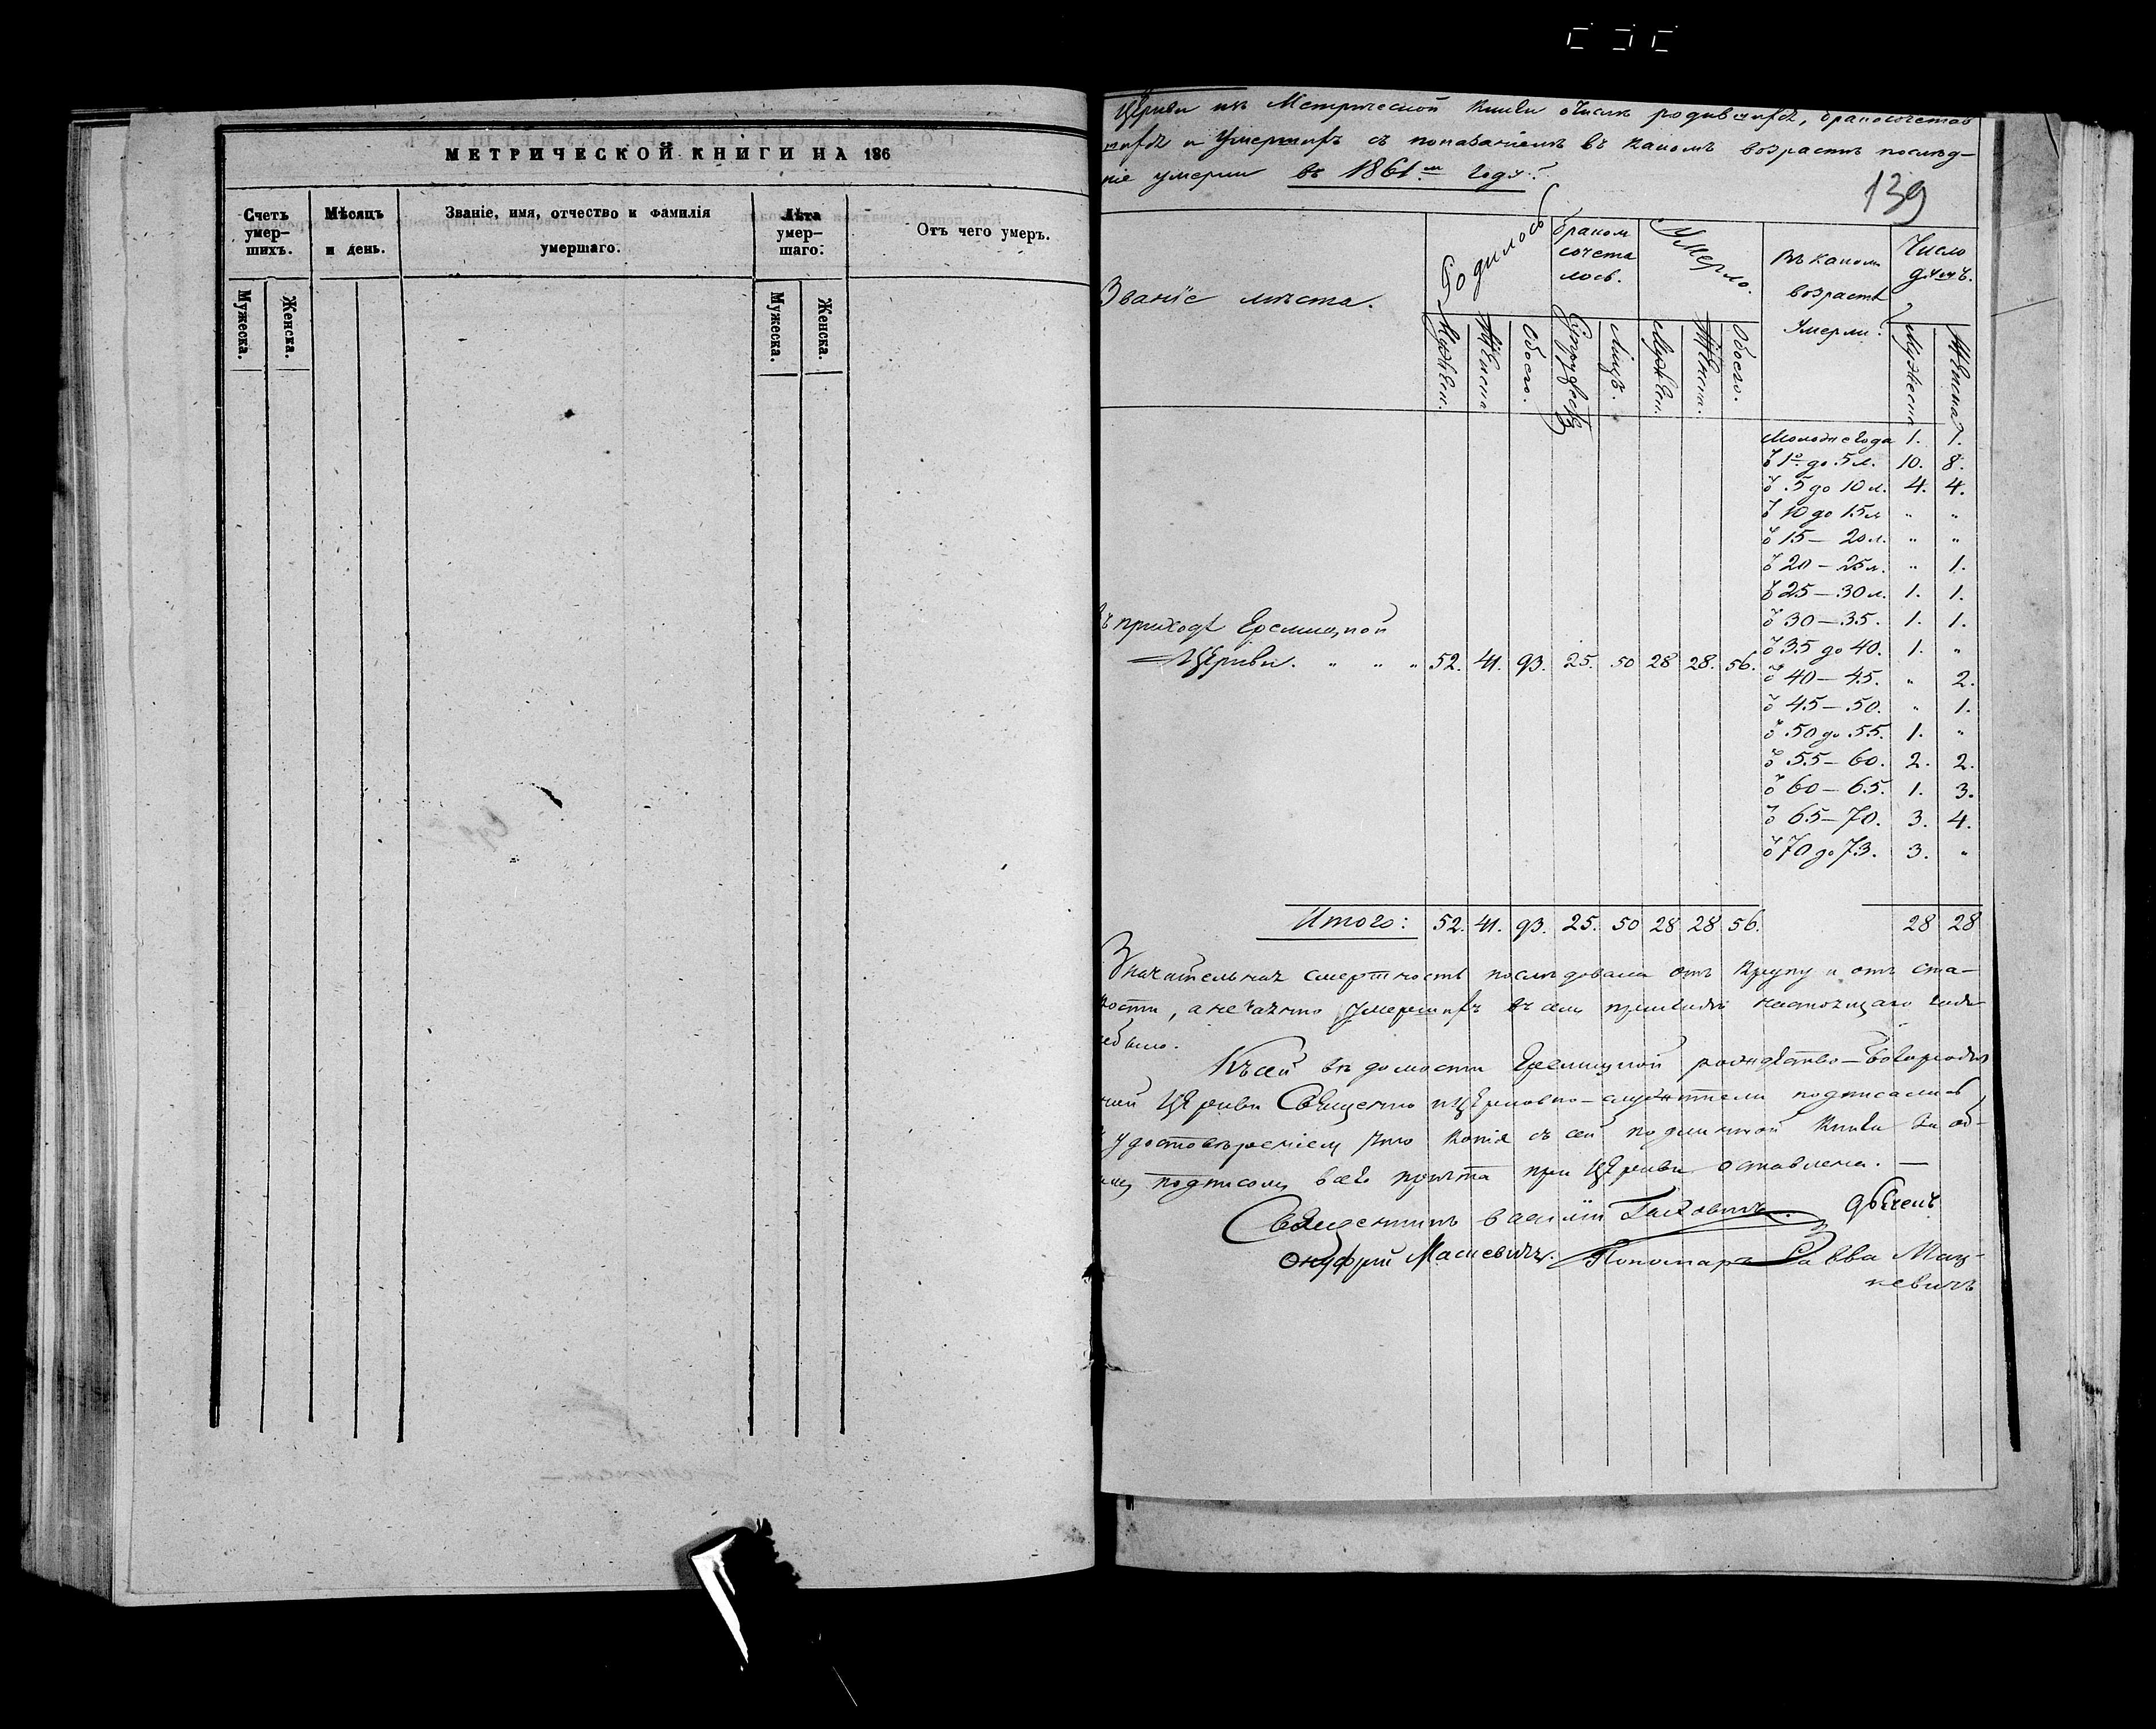 МЕТРИЧЕСКОЙ КНИГИ НА 186
Счетъ умер- шихъ.
Мѣсяцъ и день.
Званіе, имя, отчество и фамилія умершаго.
Лѣта умер- шаго.
Отъ чего умеръ.
Мужеска. Женска. Мужеска. Женска.
Церкви изъ Метрической книги о числѣ родившихся, бракосочетав
шихся и умершихъ съ показаніемъ въ какомъ возрастѣ послѣд-
ніе умерли въ 1861.м году.
139
Званіе мѣста.
Родилось
бракомъ сочета лось.
Умерло.
Въ какомъ возрастѣ умерли.
Число душъ.
Мужеск. Женска Обоего. Супружеств Лицъ. Мужеск. Женск. Обоего. Мужеск Женска
Моложе года 1. 1.
1го до 5 л. 10. 8.
5 до 10 л. 4. 4.
10 до 15 л. " "
15 — 20 л. " "
20 — 25 л. " 1.
25 — 30 л. 1. 1.
30 — 35. 1. 1.
въ приходѣ Еремицкой
35 до 40. 1. "
Церкви. " " " 52. 41. 93. 25. 50 28 28. 56.
40 — 45. " 2.
45 — 50. " 1.
50 до 55. 1. "
55 — 60. 2. 2.
60 — 65. 1. 3.
65 — 70. 3. 4.
70 до 73. 3. "
Итого: 52. 41. 93. 25. 50 28 28 56. 28 28
Значительная смертность послѣдовала отъ крупу и отъ ста-
рости, а нечаянно умершихъ въ семъ приходѣ настоящаго года
небыло.
Къ сей вѣдомости Еремицкой рождество-Богородич
ной Церкви Священно и церковно-служители подписались
удостовѣреніемъ что копія съ сей подлинной книги за об-
щимъ подписомъ всего причта при Церкви оставлена. —
Священникъ Василій дьячекъ
Онуфрій Мацкевичъ. Пономарь Савва Мац-
кевичъ